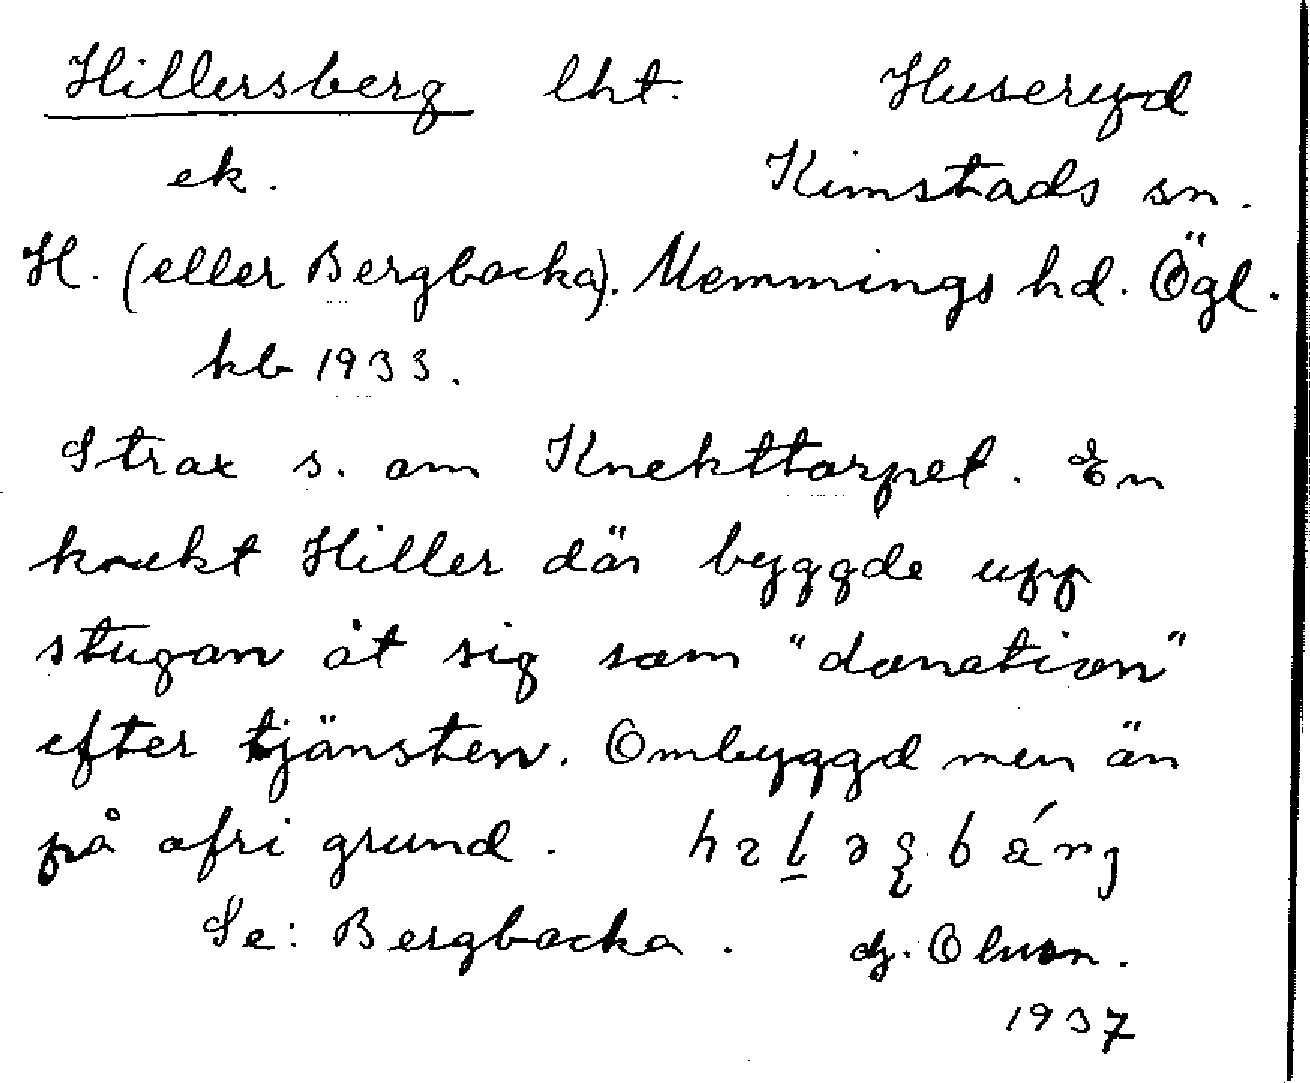 Hillersberg lht. Huseryd
ek. Kimstads sn.
H. (eller Bergbacka). Memmings hd. Ögl.
kb 1933.
Strax s. om Knekttorpet. En
knekt Hiller där byggde upp
stugan åt sig som "donation"
efter tjänsten. Ombyggd men än
på ofri grund.
Se: Bergbacka. Olson.
1937